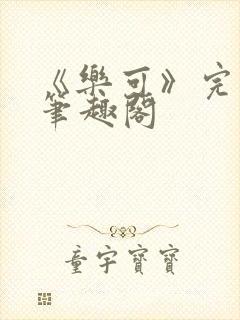 《樂可》完
筆趣閣
童宇寶寶